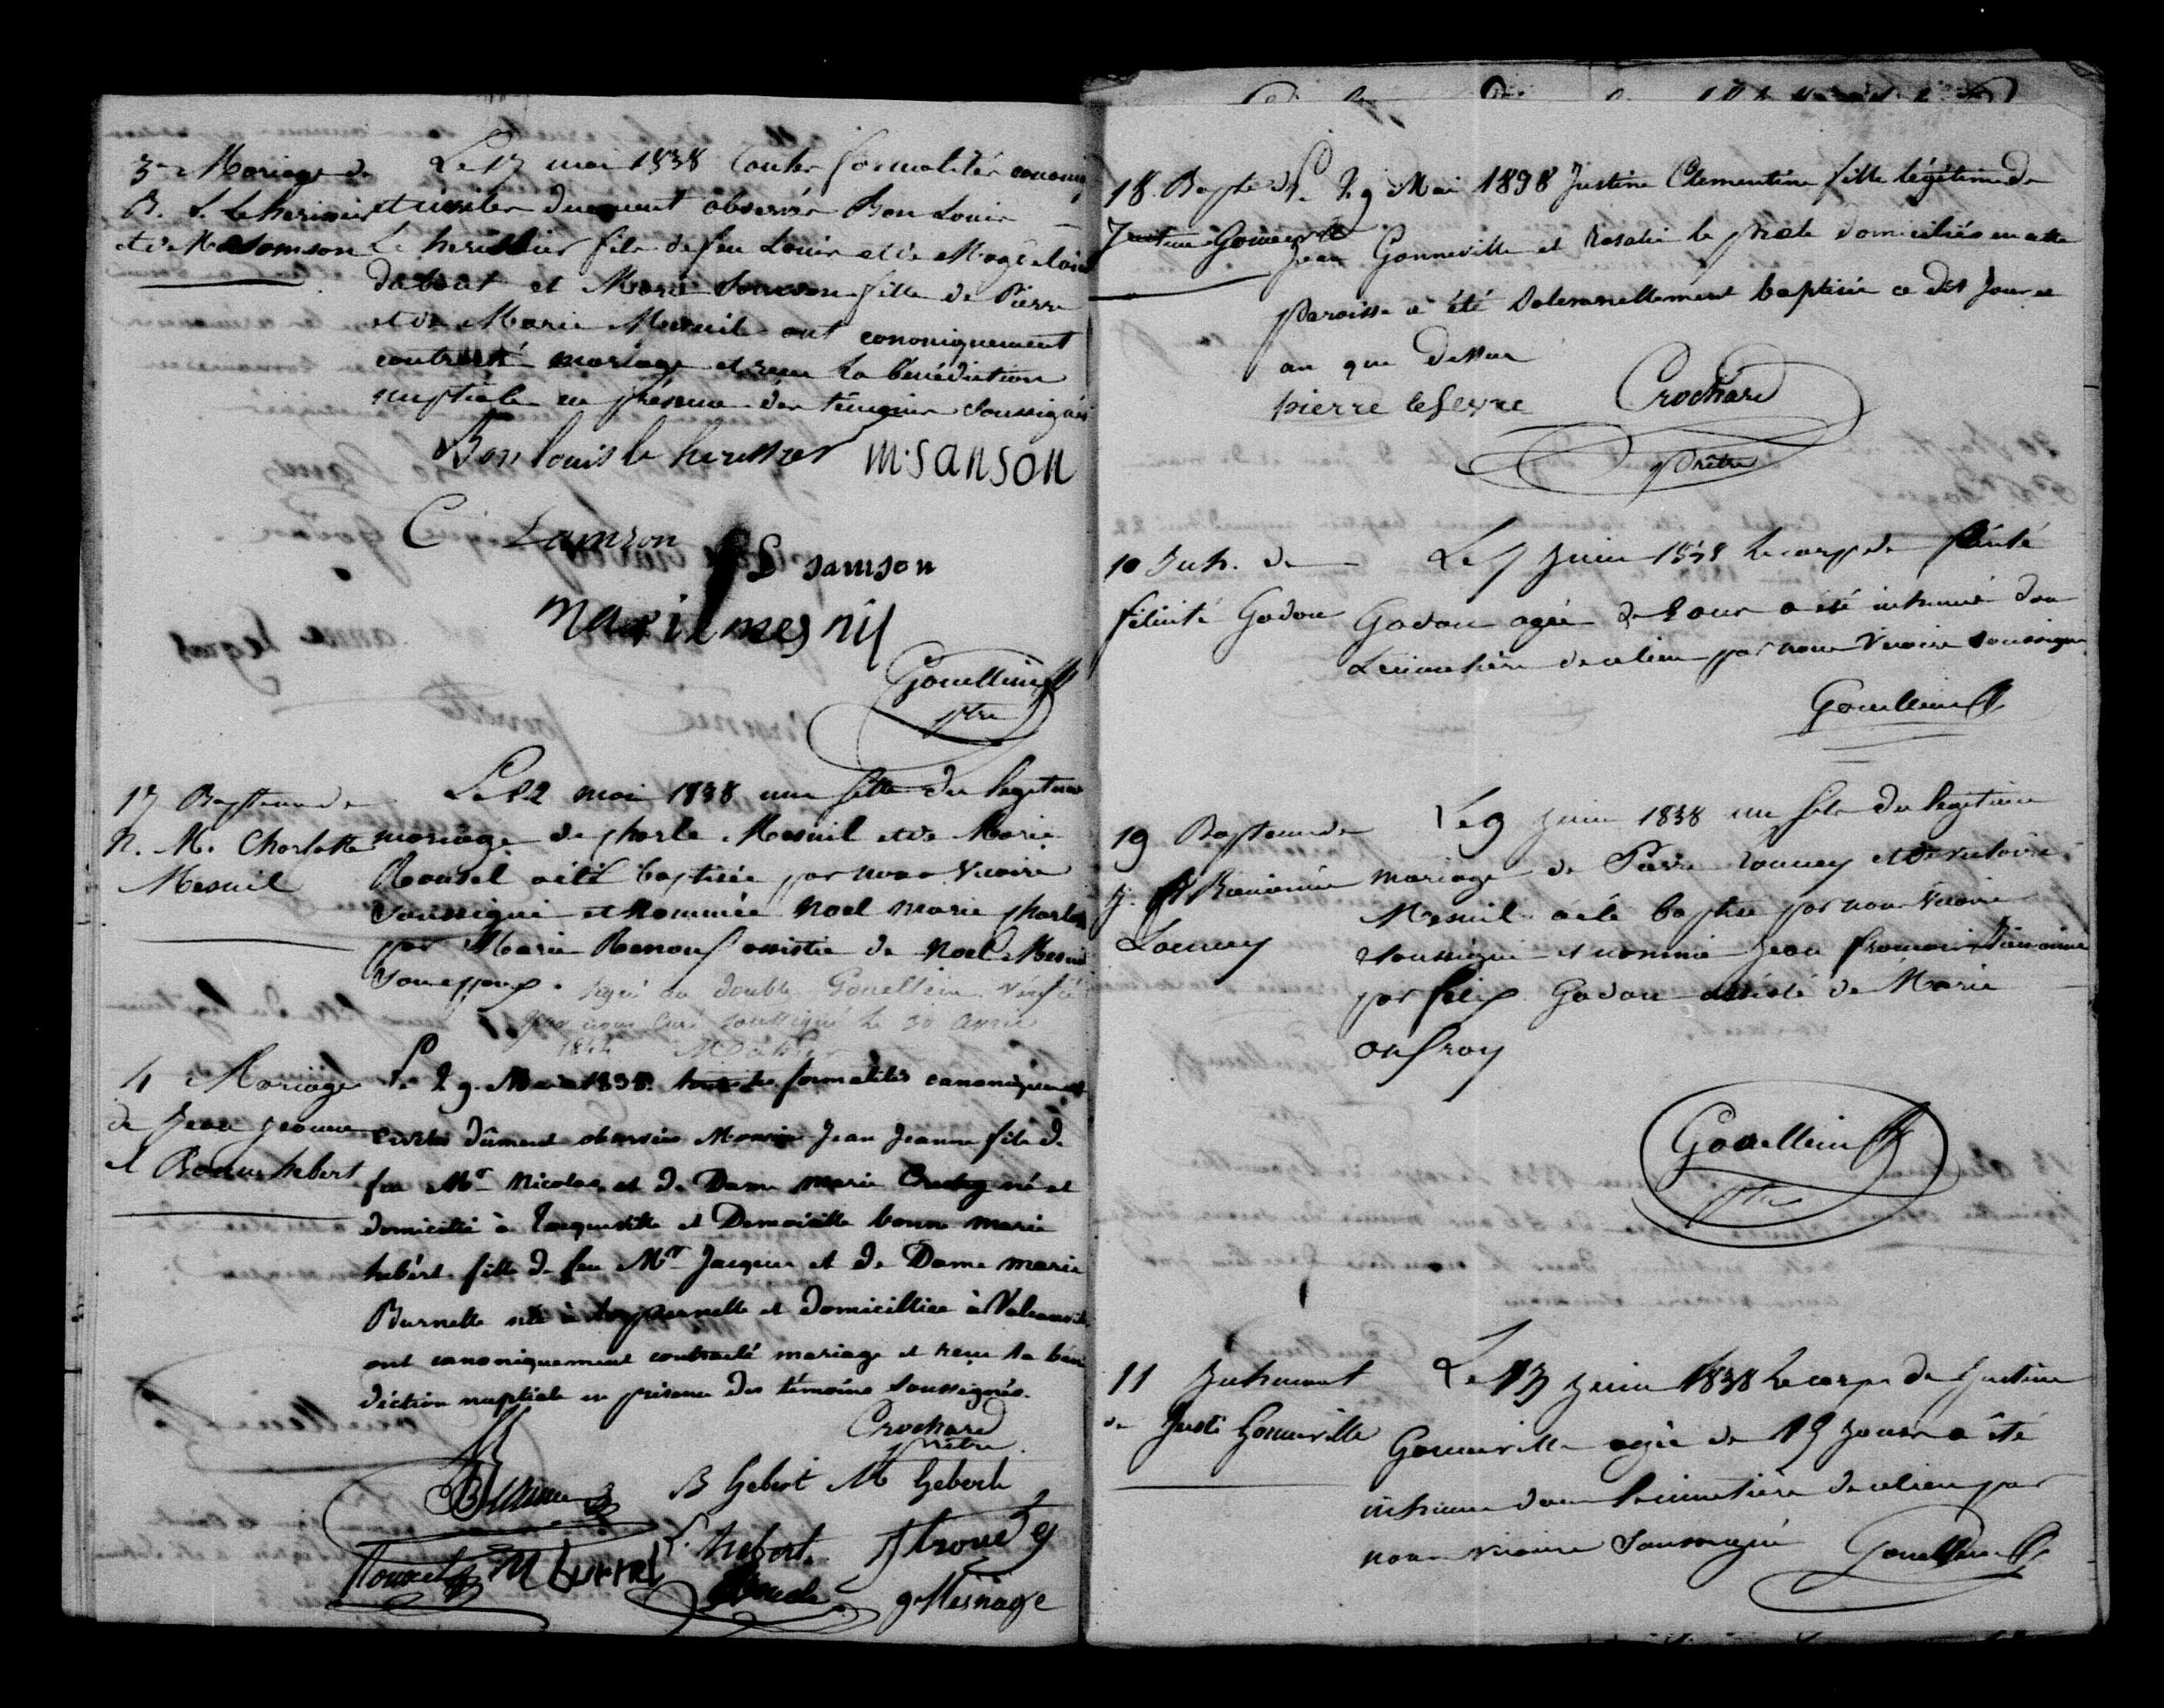 3e Mariage de
B. L. Lehérissier
et de M Samson
Le 17 mai 1838 toutes formalités canoniq
et civiles duement observées Bon Louis
Le hérissier fils de feu Louis et de Magdelaine
Daboat et Marie Samson fille de Pierre
et de Marie Mesnil ont canoniquement
contracté mariage et reçu la bénédiction
nuptiale en présence des témoins soussignés
Bon louis le herissier m. sanson
C Samson
P S samson
marie mesnil
Gouellain
ptre
17 Bapteme de
N. M. Charlotte
Mesnil
Le 22 mai 1838 une fille du legitime
mariage de Charle Mesnil et de Marie
Rousel a été baptisée par nous vicaire
soussigné et nommée Noel marie charlotte
par Marie Renouf assistée de Noel Mesnil
son epoux. signé au double Gouellain. Vérifié
par nous curé soussigné le 30 avril
4 Mariage
de Jean Jeanne
et Bonne hebert
Le 29 Mai 1838. toutes les formalités canoniques et
civiles dûment observées Monsieur Jean Jeanne fils de
feu Mr Nicolas et de Dame marie né et
domicilié à Tocqueville et Demoiselle bonne marie
hébert fille de feu Mr Jacques et de Dame marie
Burnelle née à la pernelle et domiciliée à Valcanville
ont canoniquement contracté mariage et reçu la béné
diction nuptiale en présence des témoins soussignés.
Crochard
prêtre.
B hebert M hebert
L. hebert
g Mesnage
18. Bapte de
Justine Gonneville
Le 29 Mai 1838 Justine Clementine fille légitime de
Jean Gonneville et Rosalie le domiciliés en cette
paroisse a été solennellement baptisée ce dit jour et
an que dessus
pierre lefevre Crochard
prêtre
10 Inh. de
félicité Godou
Le 7 juin 1838 le corps de félicité
Godou agée de 2 ans a été inhumé dans
le cimetière de ce lieu par nous vicaire soussigné
Gouellain
19 Bapteme de
j. f. Bienaimé
Launey
Le 9 juin 1838 un fils du legitime
mariage de Pierre Launey et de victoire
Mesnil a été baptisé par nous vicaire
soussigné et nommé jean françois Bienaimé
par felix Godou assisté de Marie
onfroy
Gouellain
ptre
11 Inhumat
de Justi Gonneville
Le 13 juin 1838 le corps de Justine
Gonneville agée de 15 jours a été
inhumé dans le cimetière de ce lieu par
nous vicaire soussigné Gouellain